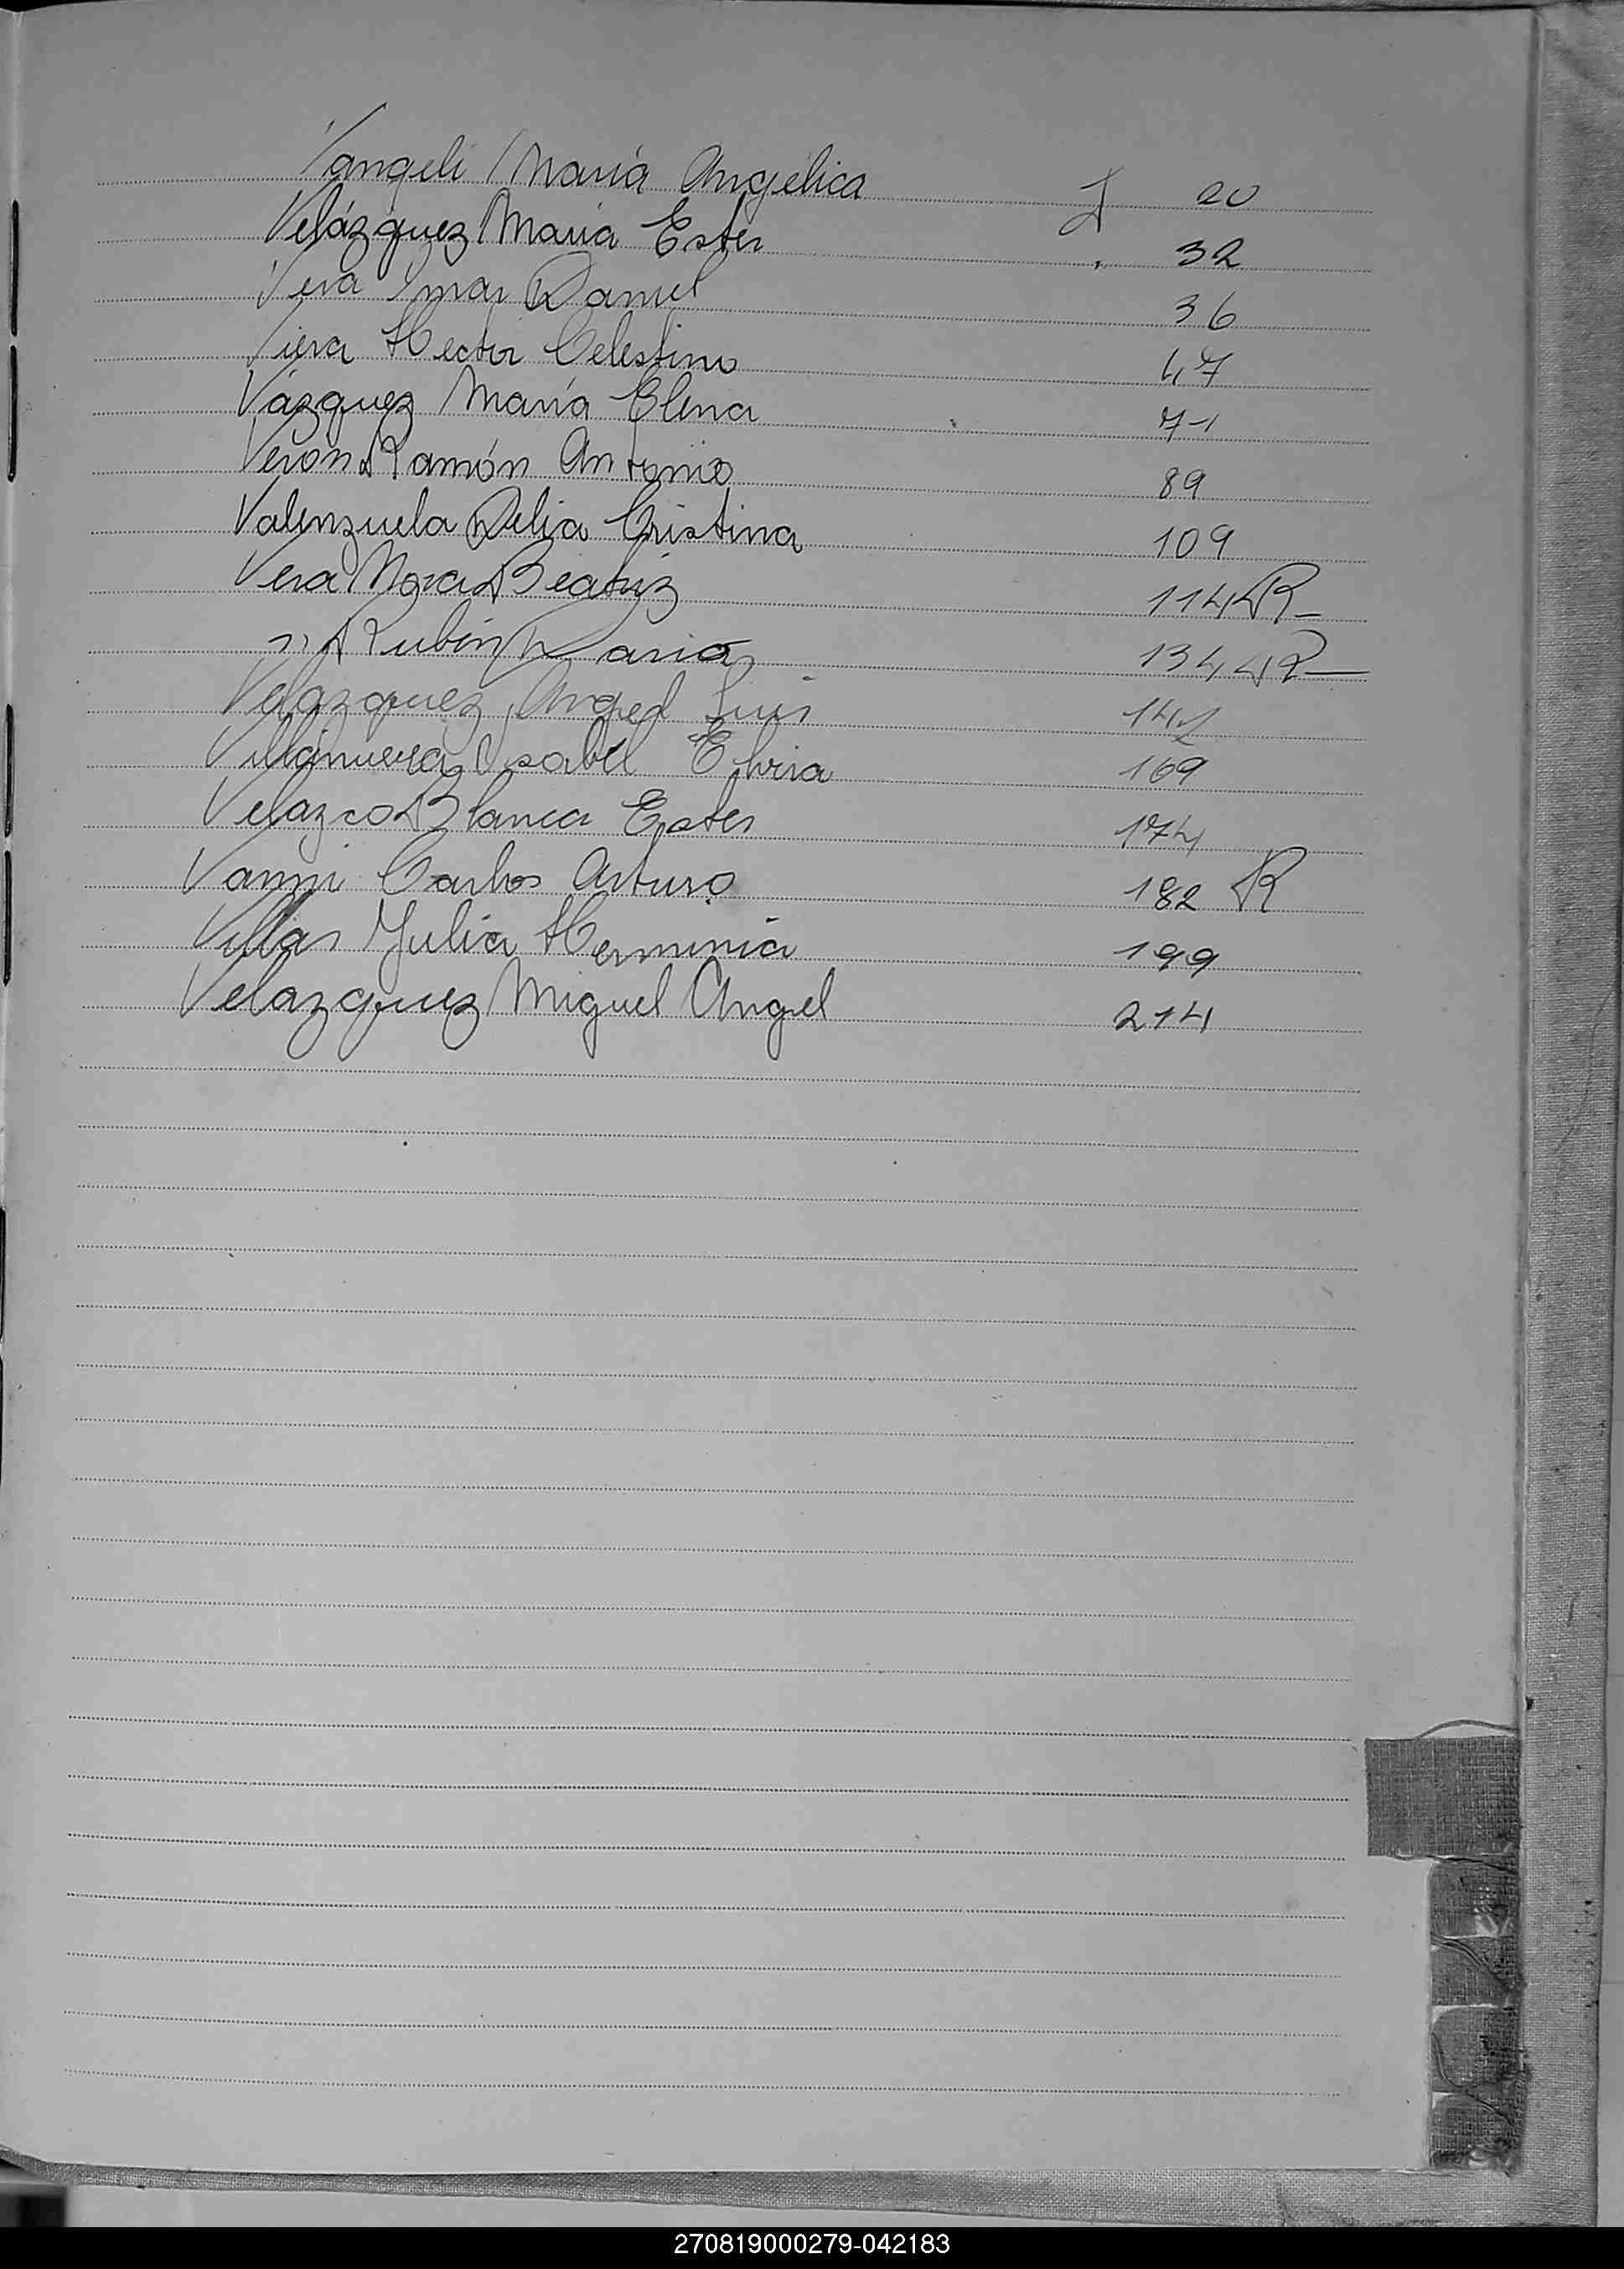 Vangeli María Angélica f 20
Velázquez María Ester 32
Vera Omar Daniel 36
Viera Hector Celestino 47
Vázquez María Elena 71
Verón Ramón Antonio 89
Valenzuela Delia Cristina 109
Vera Nora Beatriz 114 R-
" Rubén Darío 134 R-
Velazquez Angel Luis 142
Villanueva Isabel Elvira 169
Velazco Blanca Ester 174
Vanni Carlos Arturo 182 R
Villar Julia Herminia 199
Velazquez Miguel Angel 214
270819000279-042183